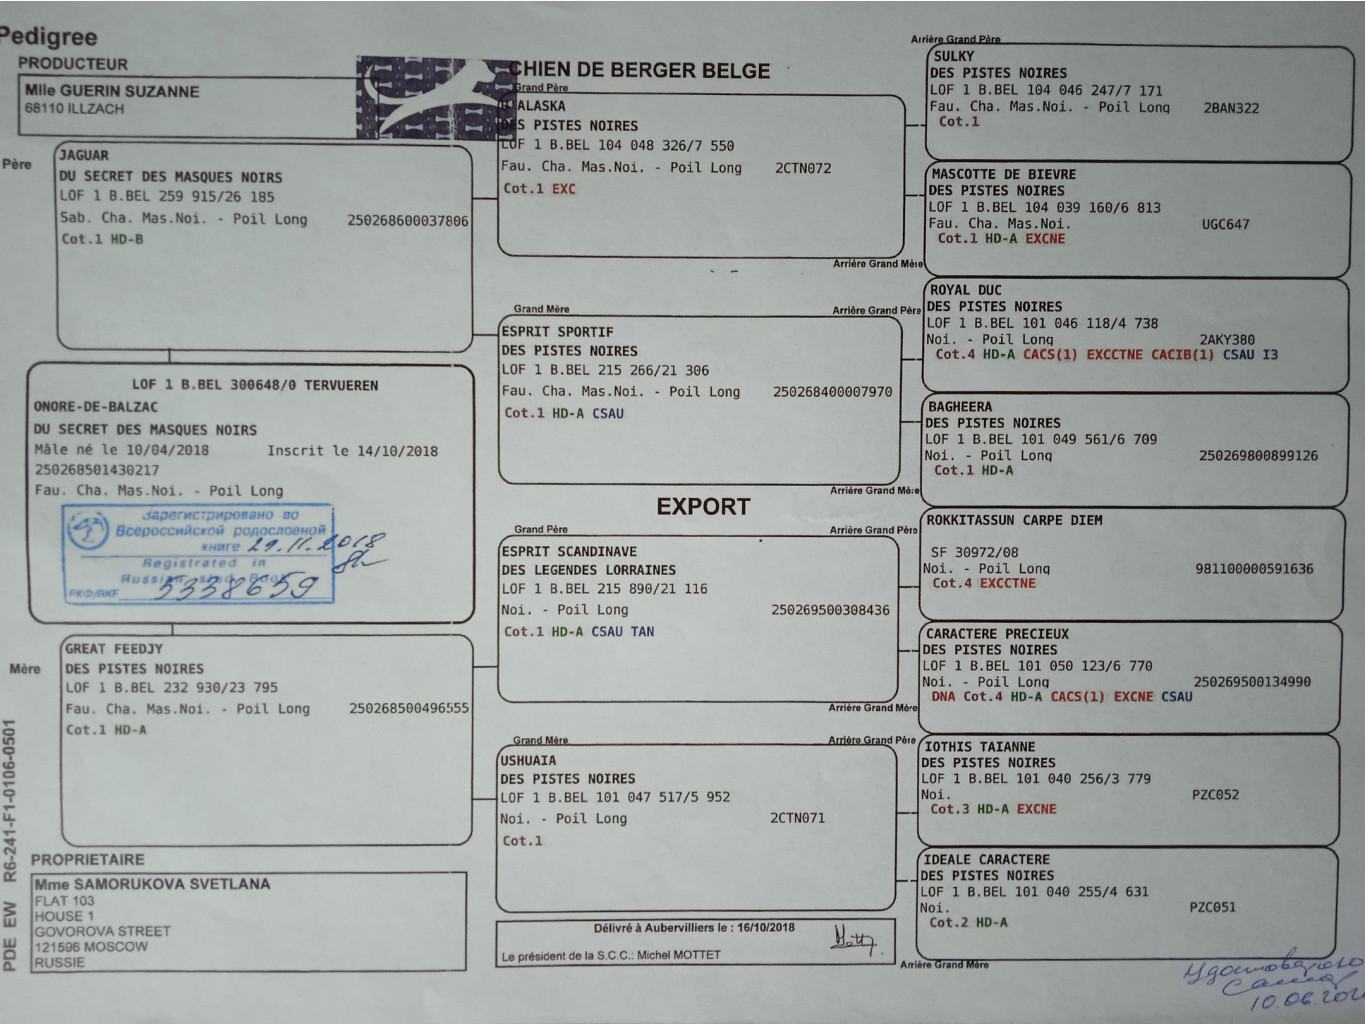 Pedigree
PRODUCTEUR
Mlle GUERIN SUZANNE
68110 ILLZACH
CHIEN DE BERGER BELGE
Père
JAGUAR
DU SECRET DES MASQUES NOIRS
LOF 1 B.BEL 259 915/26 185
Sab. Cha. Mas.Noi. - Poil Long 250268600037806
Cot.1 HD-B
LOF 1 B.BEL 300648/0 TERVUEREN
ONORE-DE-BALZAC
DU SECRET DES MASQUES NOIRS
Mâle né le 10/04/2018 Inscrit le 14/10/2018
250268501430217
Fau. Cha. Mas.Noi. - Poil Long
Зарегистрировано во
Всероссийской родословной
книге 29.11.2018
Registered in
Russian stud Book
РКФ/RKF 5338659
Mère
GREAT FEEDJY
DES PISTES NOIRES
LOF 1 B.BEL 232 930/23 795
Fau. Cha. Mas.Noi. - Poil Long 250268500496555
Cot.1 HD-A
PROPRIETAIRE
Mme SAMORUKOVA SVETLANA
FLAT 103
HOUSE 1
GOVOROVA STREET
121596 MOSCOW
RUSSIE
PDE EW R6-241-F1-0106-0501
Grand Père
ALASKA
DES PISTES NOIRES
LOF 1 B.BEL 104 048 326/7 550
Fau. Cha. Mas.Noi. - Poil Long 2CTN072
Cot.1 EXC
Grand Mère
ESPRIT SPORTIF
DES PISTES NOIRES
LOF 1 B.BEL 215 266/21 306
Fau. Cha. Mas.Noi. - Poil Long 250268400007970
Cot.1 HD-A CSAU
EXPORT
Grand Père
ESPRIT SCANDINAVE
DES LEGENDES LORRAINES
LOF 1 B.BEL 215 890/21 116
Noi. - Poil Long 250269500308436
Cot.1 HD-A CSAU TAN
Grand Mère
USHUAIA
DES PISTES NOIRES
LOF 1 B.BEL 101 047 517/5 952
Noi. - Poil Long 2CTN071
Cot.1
Délivré à Aubervilliers le : 16/10/2018
Le président de la S.C.C.: Michel MOTTET
Arrière Grand Père
SULKY
DES PISTES NOIRES
LOF 1 B.BEL 104 046 247/7 171
Fau. Cha. Mas.Noi. - Poil Long 2BAN322
Cot.1
MASCOTTE DE BIEVRE
DES PISTES NOIRES
LOF 1 B.BEL 104 039 160/6 813
Fau. Cha. Mas.Noi. UGC647
Cot.1 HD-A EXCNE
Arrière Grand Mère
Arrière Grand Père
ROYAL DUC
DES PISTES NOIRES
LOF 1 B.BEL 101 046 118/4 738
Noi. - Poil Long 2AKY380
Cot.4 HD-A CACS(1) EXCCTNE CACIB(1) CSAU I3
BAGHEERA
DES PISTES NOIRES
LOF 1 B.BEL 101 049 561/6 709
Noi. - Poil Long 250269800899126
Cot.1 HD-A
Arrière Grand Mère
Arrière Grand Père
ROKKITASSUN CARPE DIEM
SF 30972/08
Noi. - Poil Long 981100000591636
Cot.4 EXCCTNE
CARACTERE PRECIEUX
DES PISTES NOIRES
LOF 1 B.BEL 101 050 123/6 770
Noi. - Poil Long 250269500134990
DNA Cot.4 HD-A CACS(1) EXCNE CSAU
Arrière Grand Mère
Arrière Grand Père
IOTHIS TAIANNE
DES PISTES NOIRES
LOF 1 B.BEL 101 040 256/3 779
Noi. PZC052
Cot.3 HD-A EXCNE
IDEALE CARACTERE
DES PISTES NOIRES
LOF 1 B.BEL 101 040 255/4 631
Noi. PZC051
Cot.2 HD-A
Arrière Grand Mère